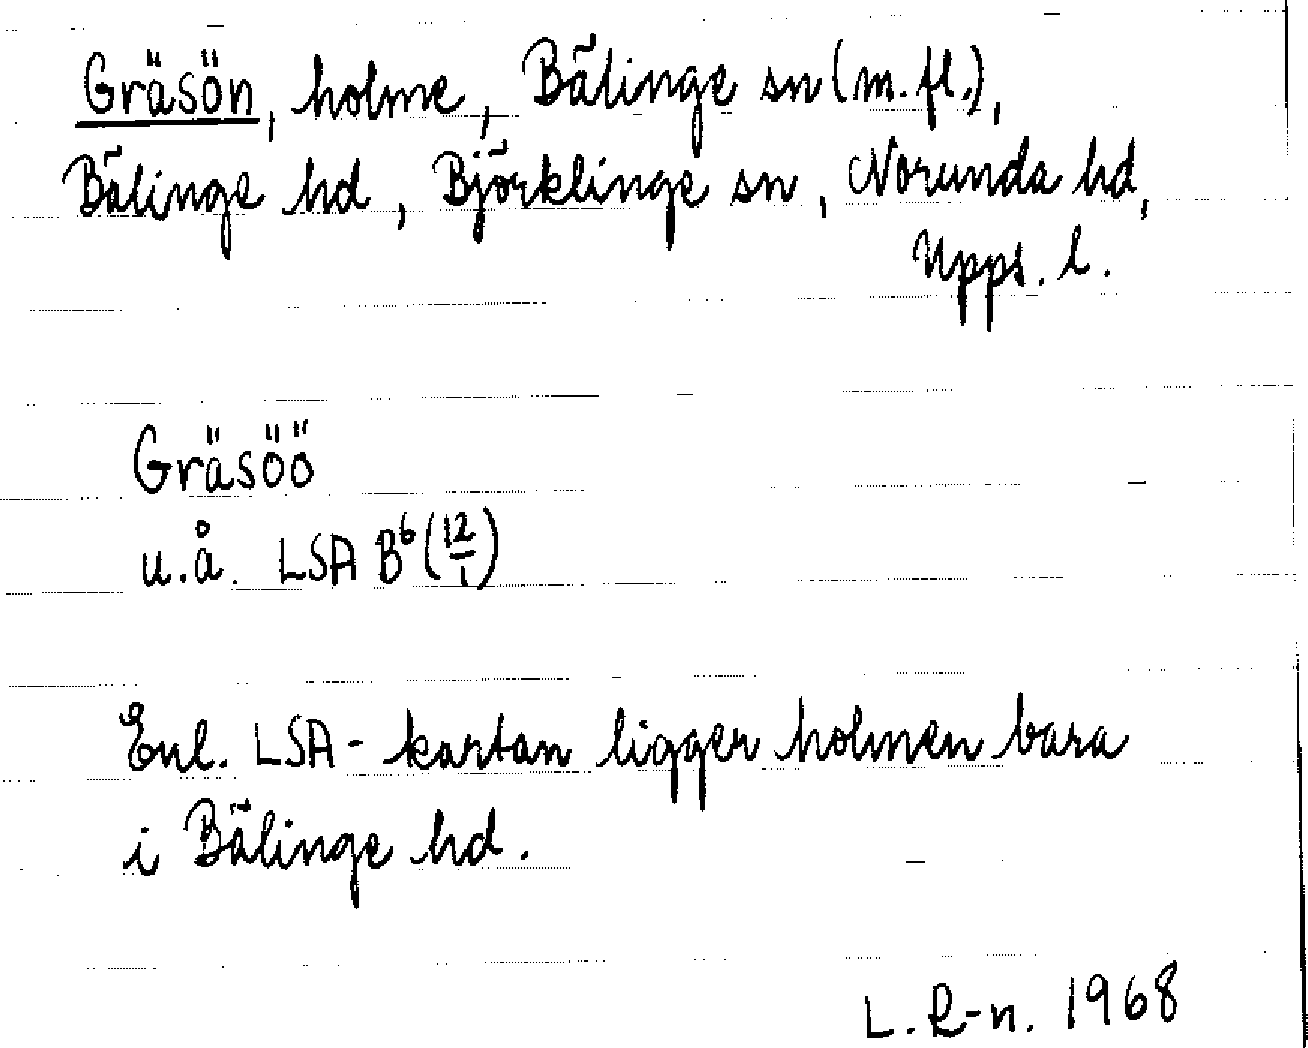 Gräsön, holme, Bälinge sn (m. fl.),
Bälinge hd, Björklinge sn, Norunda hd,
Upps. l.
Gräsöö
u.å. LSA B⁶ (12/1)
Enl. LSA-kartan ligger holmen bara
i Bälinge hd.
L. R-n. 1968